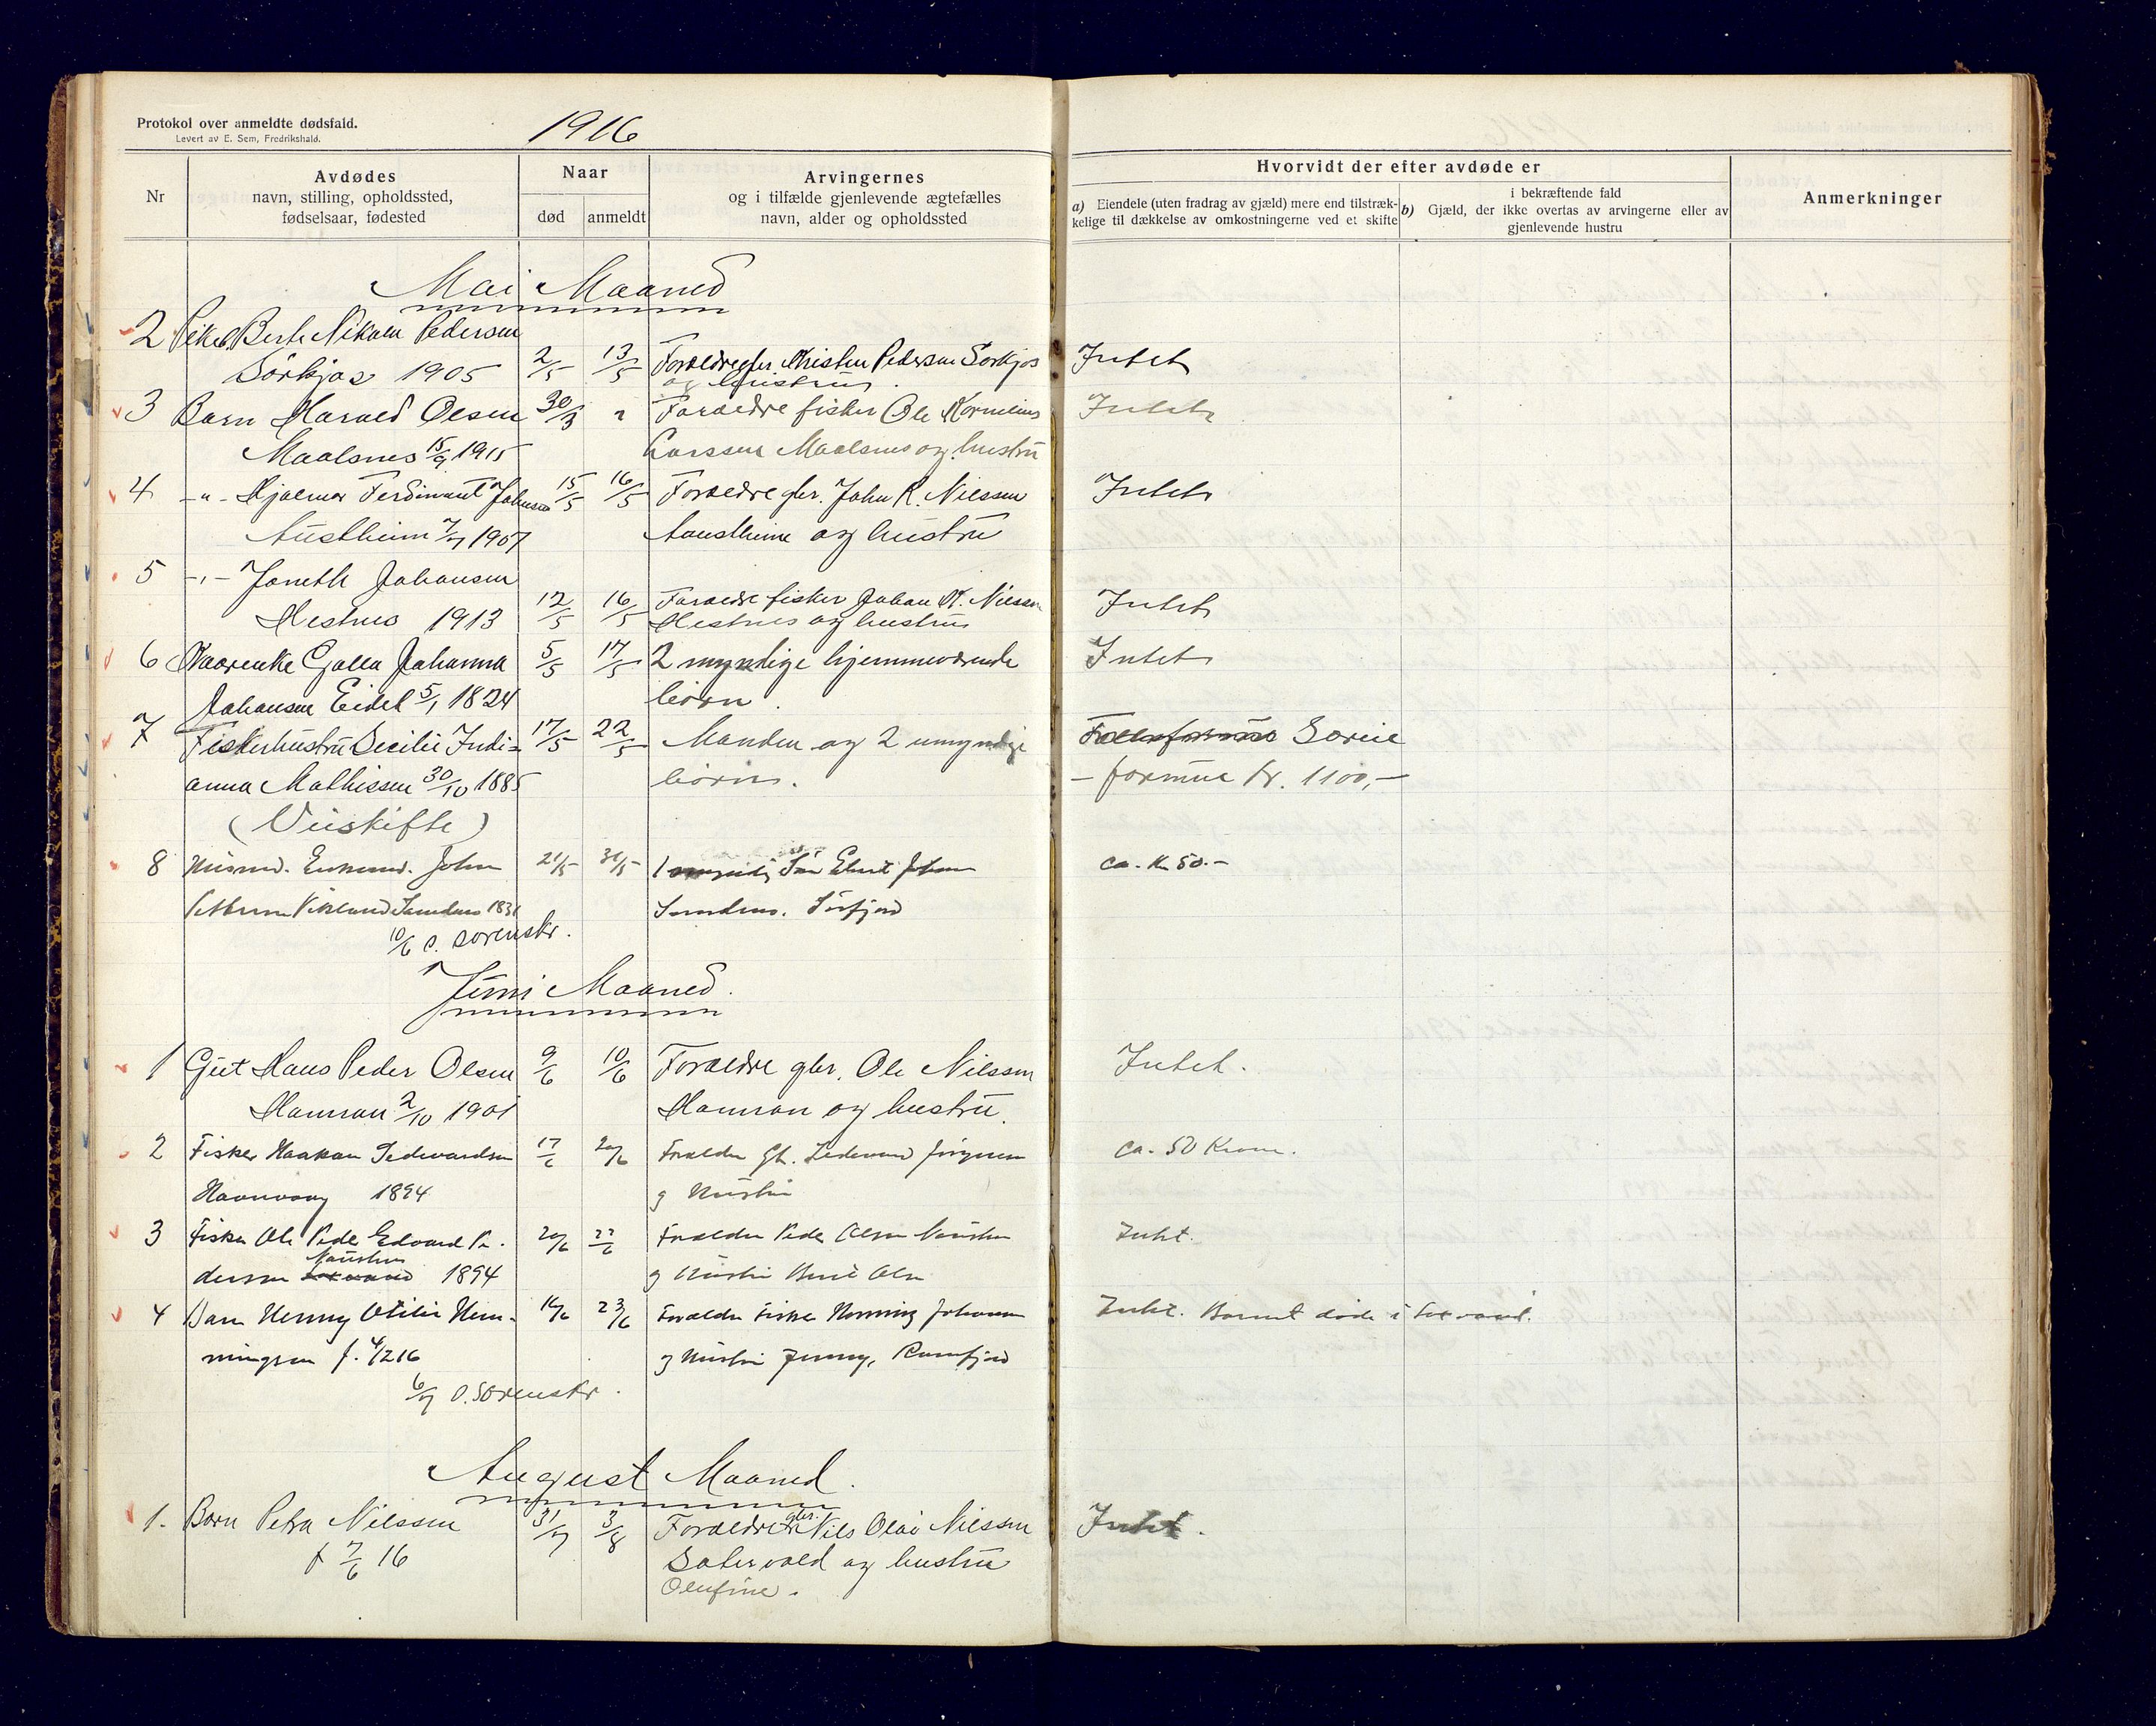 Protokol over anmeldte dødsfald.
Levert av E. Sem, Fredrikshald.
1916
Nr
Avdødes
navn, stilling, opholdssted,
fødselsaar, fødested
Naar
død
anmeldt
Arvingernes
og i tilfælde gjenlevende ægtefælles
navn, alder og opholdssted
Hvorvidt der efter avdøde er
a) Eiendele (uten fradrag av gjæld) mere end tilstræk-
kelige til dækkelse av omkostningerne ved et skifte
i bekræftende fald
b) Gjæld, der ikke overtas av arvingerne eller av
gjenlevende hustru
Anmerkninger
Mai Maaned
2 Pedersen
Sörkjos 1905 2/5 13/5 Forældre gbr. Kristen Pedersen Sörkjos Intet
og hustru.
3 Barn Harald Olsen 30/3 " Forældre fisker Ole Kornelius Intet
Maalsnes 15/9 1915 Larssen Maalsnes og hustru
4 -"- Hjalmar Ferdinant Johnsen 15/5 16/5 Forældre gbr. John R. Nilssen Intet
Austheim 1907 Austheim og hustru
5 -"- Johansen
Hestnes 1913 12/5 16/5 Forældre fisker Johan K. Nilssen Intet
Hestnes og hustru
6 Johanna 5/5 17/5 2 myndige hjemmeværende Intet
Johansen Eidet 5/1 1824 börn.
7 Fiskerhustru Secilie Indi- 17/5 22/5 Manden og 2 umyndige Boreie
anna Mathissen 30/10 1885 börn. - formue kr. 1100,-
(Uskifte)
8 Husmd. Enkemd. John 21/5 31/5 1 Sön ca. Kr 50.-
Sandnes 1831 Sandnes. Sörfjord
10/6 o. sorenskr.
Juni Maaned.
1 Gut Hans Peder Olsen 9/6 10/6 Forældre gbr. Ole Nilssen Intet.
Hamran 2/10 1901 Hamran og hustru.
2 Fisker Haakon Sedevardsen 17/6 20/6 Forældre Gb. Sedevard Jörgensen ca. 50 Kroner.
Havnvaag 1894 og Hustru
3 Fisker Ole Peder Edvard Pe- 20/6 22/6 Forældre Peder Olsen Naustnes Intet.
Naustnes
dersen 1894 og Hustru Olsen
4 Barn Henny Otilie Hen- 16/6 23/6 Forældre Fisker Henning Johansen Intet. Barnet døde i
ningsen f. 4/2 16 og Hustru Jenny, Ramfjord
6/7 o. sorenskr.
August Maaned.
1. Barn Petra Nilssen 31/7 3/8 Forældre gbr. Nils Olai Nilssen Intet.
f 7/6 16 Satervold og hustru
Olufine.